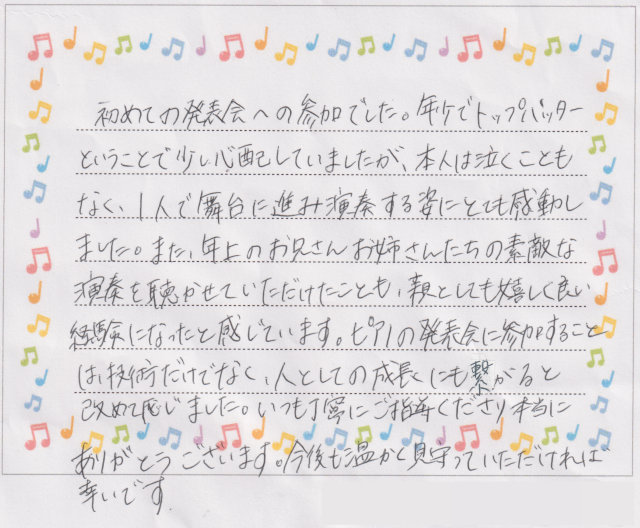 初めての発表会への参加でした。年少でトップバッター
ということで少し心配していましたが、本人は泣くことも
なく、1人で舞台に進み演奏する姿にとても感動し
ました。また、年上のお兄さんお姉さんたちの素敵な
演奏を聴かせていただけたことも、親としても嬉しく良い
経験になったと感じています。ピアノの発表会に参加すること
は、技術だけでなく、人としての成長にも繋がると
改めて感じました。いつも丁寧にご指導くださり本当に
ありがとうございます。今後も温かく見守っていただければ
幸いです。